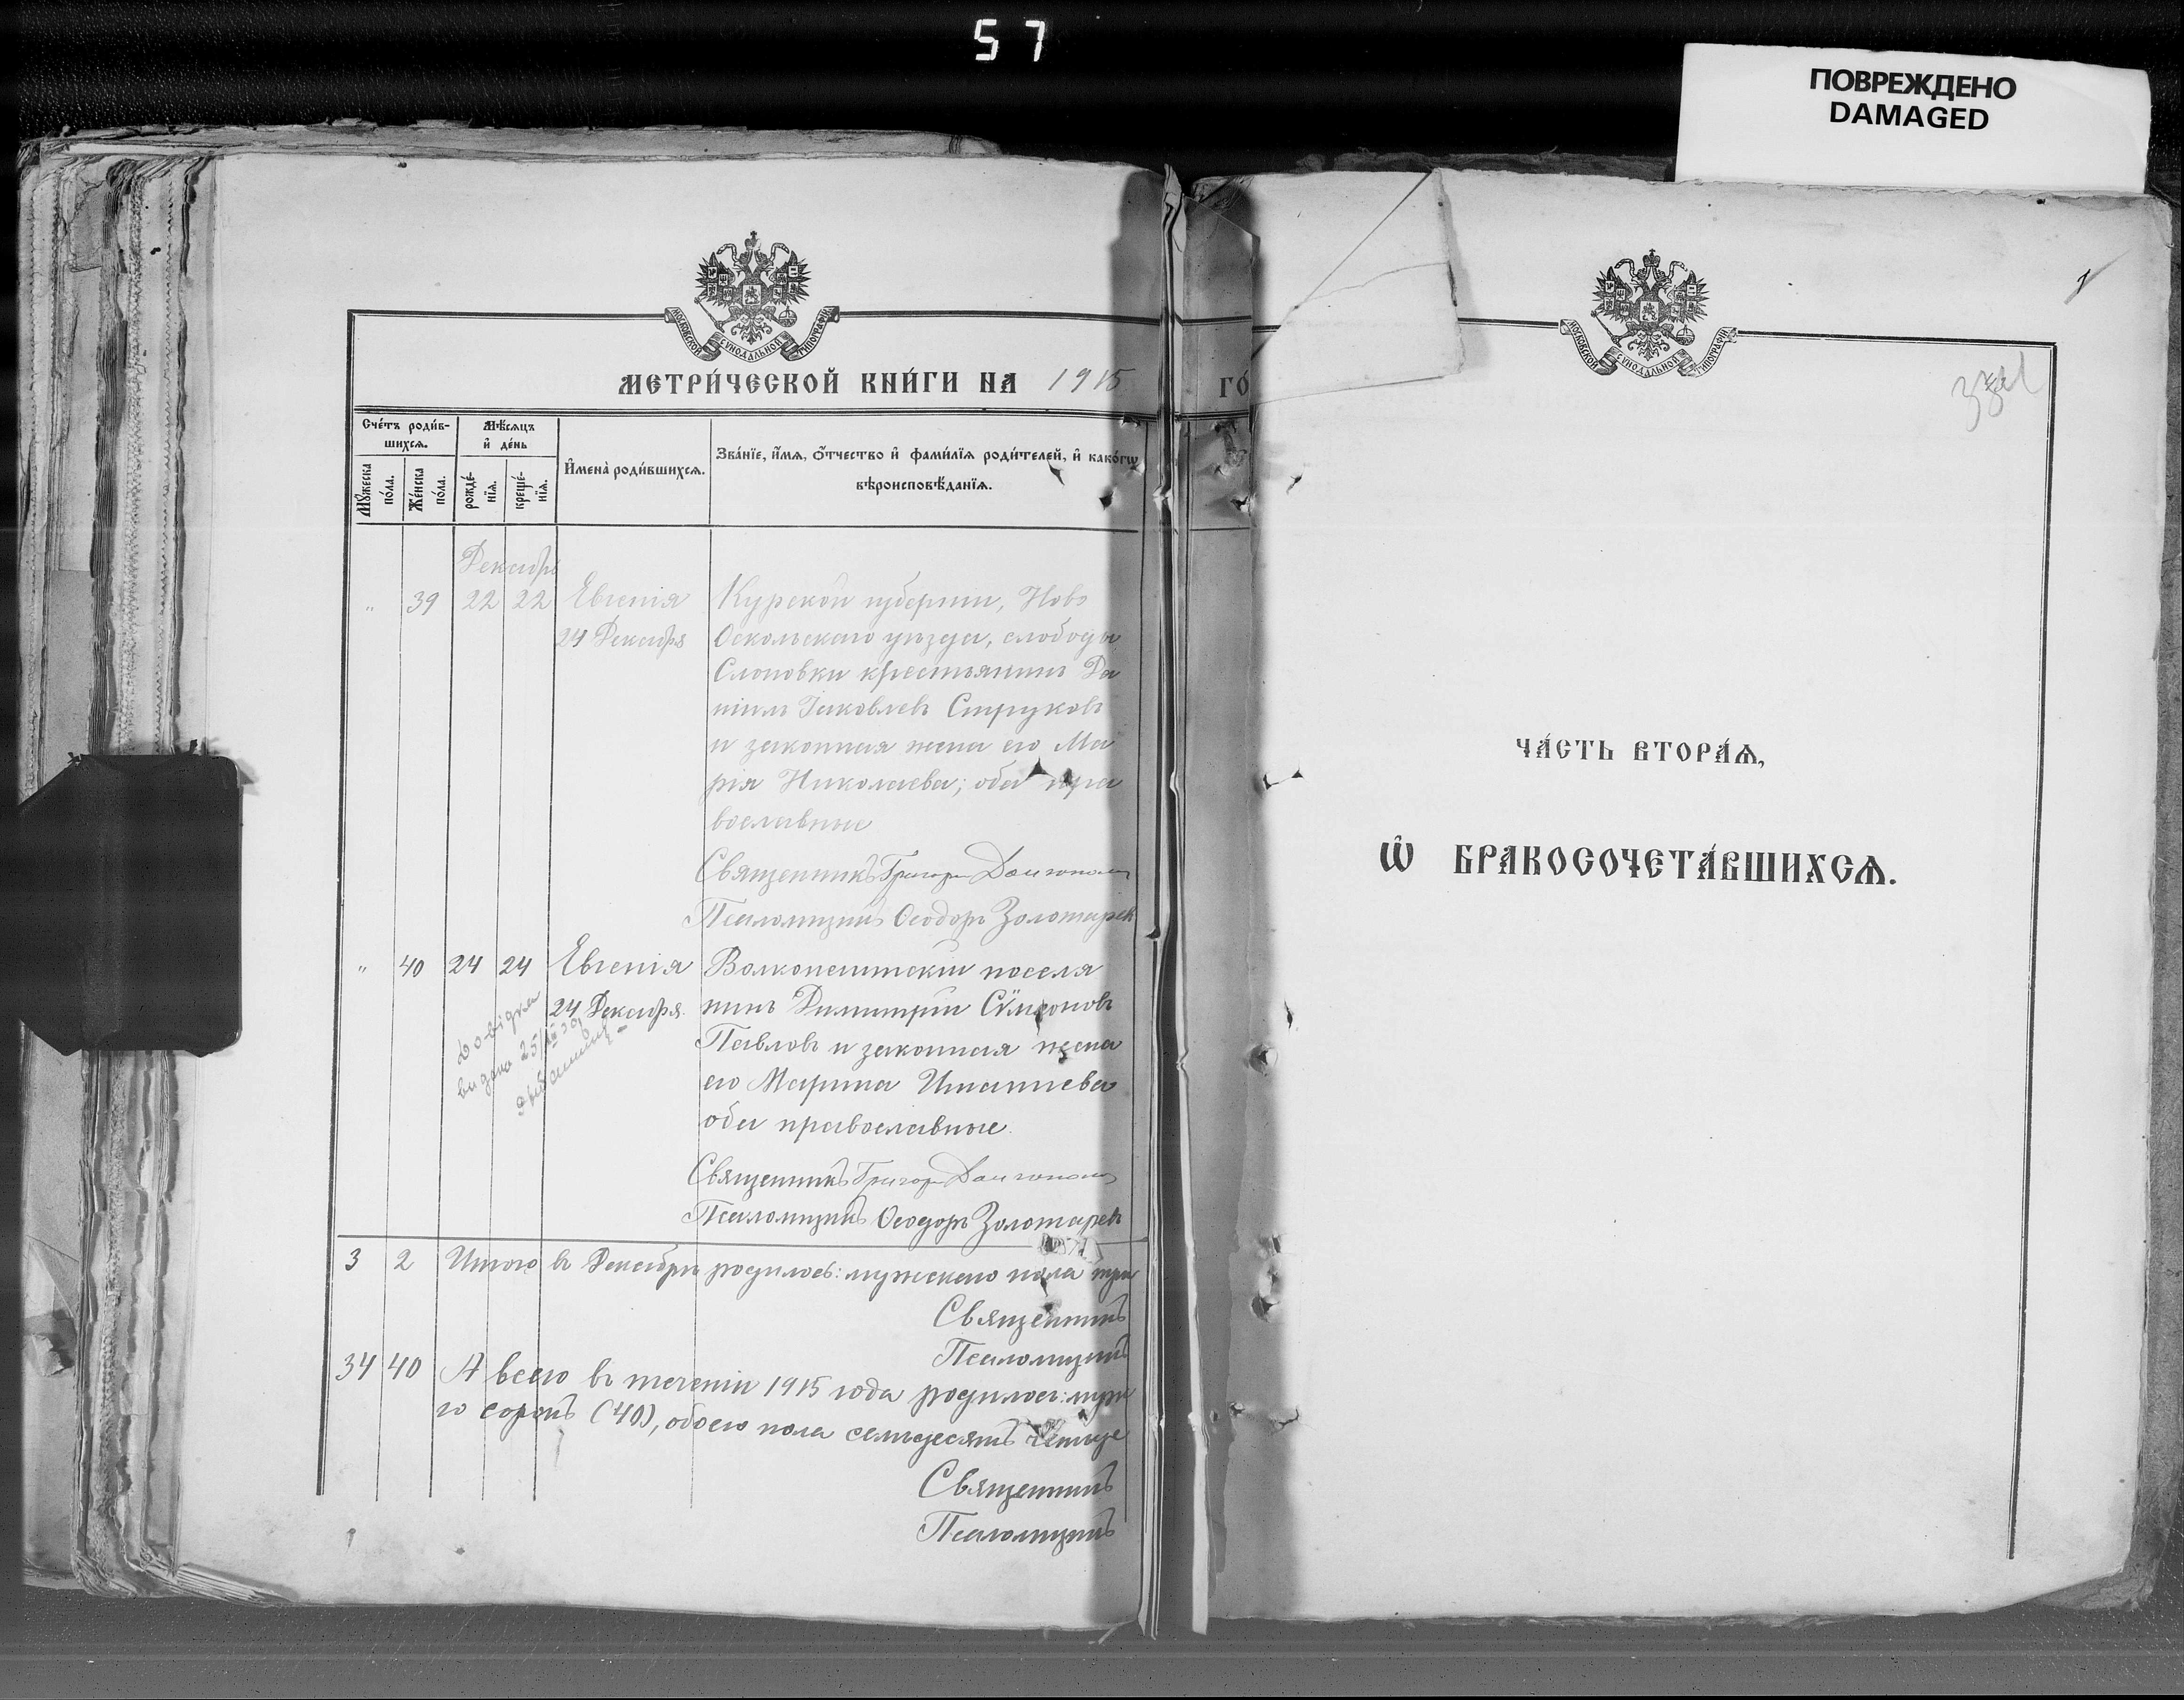 57
ПОВРЕЖДЕНО
DAMAGED
МОСКОВСКОЙ СУНОДАЛЬНОЙ ТИПОГРАФІИ
МЕТРИ́ЧЕСКОЙ КНИ́ГИ НА 1915 ГО́
Сче́тъ роди́в-
шихсѧ.
Мѣ́сѧцъ
и҆ де́нь
Мꙋ́жеска
по́ла.
Же́нска
по́ла.
рожде́-
нїѧ.
креще́-
нїѧ.
И҆мена̀ роди́вшихсѧ.
Зва́нїе, и҆́мѧ, ѻ҆́тчество и҆ фами́лїѧ роди́телей, и҆ како́гѡ
вѣроисповѣ́данїѧ.
Декабрь
" 39 22 22 Евгенія Курской губерніи, Ново
24 Декабря Оскольскаго уѣзда, слободы
Слоновки крестьянинъ Да
ніилъ Іаковлевъ Струковъ
и законная жена его Ма
рія Николаева; оба пра
вославные
Священникъ Григорій
Псаломщикъ Ѳеодоръ Золотарев
" 40 24 24 Евгенія поселя
24 Декабря. нинъ Димитрій Сѵмеоновъ
Павловъ и законная жена
его Марина Игнатіева
оба православные.
Довідка
видана 25
Священникъ Григорій
Псаломщикъ Ѳеодоръ Золотарев
3 2 Итого въ Декабрѣ родилось: мужескаго пола три
Священникъ
Псаломщикъ
34 40 А всего въ теченіи 1915 года родилось: муж
го сорокъ (40), обоего пола семьдесятъ четыре
Священникъ
Псаломщикъ
МОСКОВСКОЙ СУНОДАЛЬНОЙ ТИПОГРАФІИ
ЧА́СТЬ ВТОРА́Ѧ,
Ѡ҆ БРАКОСОЧЕТА́ВШИХСѦ.